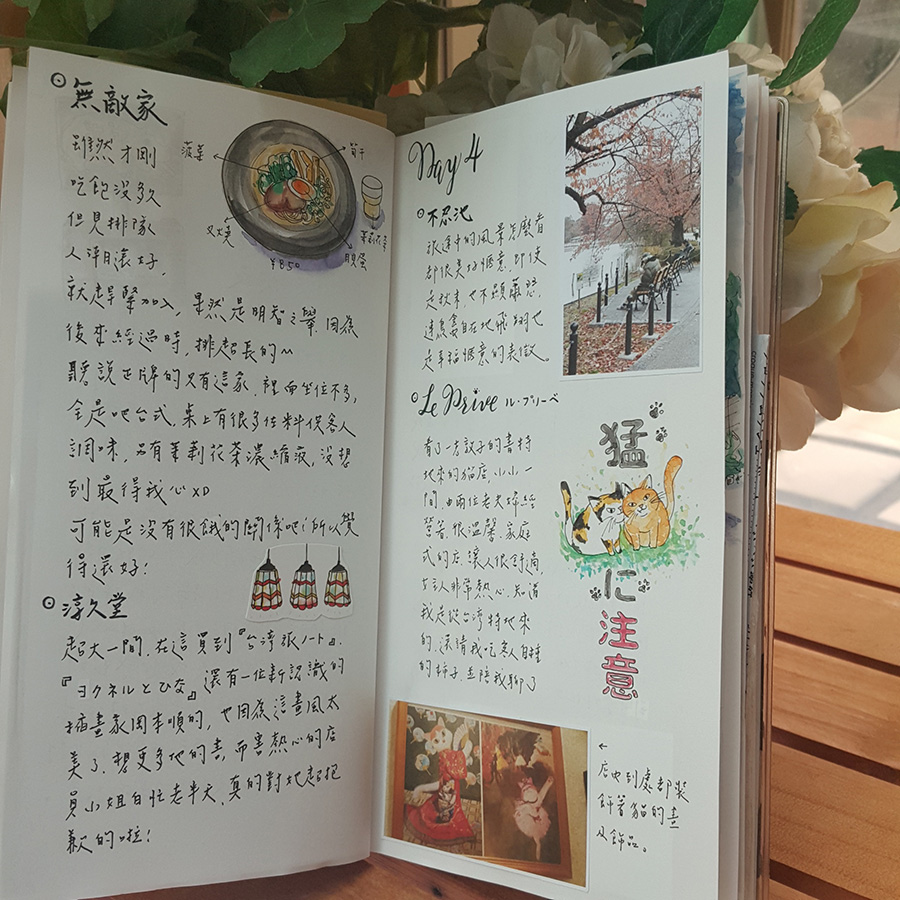 無敵家
雖然才剛
吃飽沒多久
但見排隊
人潮還好,
就趕緊加入,果然是明智之舉,因為
後來經過時,排超長的~
聽說正牌的只有這家,裡面坐位不多,
全是吧台式,桌上有很多佐料供客人
調味,另有茉莉花茶濃縮液,沒想
到最得我心XD
可能是沒有很餓的關係吧!所以覺
得還好!
菠菜
筍干
叉燒
茉莉花茶
脫蛋
¥850
淳久堂
超大一間,在這買到『台湾張ノート』、
『ヨクネルとひな』,還有一位新認識的
插畫家岡本順的,也因為這畫風太
美了,想更多他的書,而害熱心的店
員小姐白忙老半天,真的對她超抱
歉的啦!
Day 4
不忍池
旅途中的風景怎麼看
都很美好愜意,即使
是秋末,也不顯蕭瑟,
連鳥兒自在地飛翔也
是幸福愜意的表徵。
Le Prive ル・プリーベ
看了一志設子的書特
地來的貓店,小小一
間,由兩位老夫婦經
營著,很溫馨、家庭
式的店,讓人很舒適,
主人非常熱心,知道
我是從台灣特地來
的,還請我吃家人自種
的柿子,並陪我聊了
猛
に
注意
←
店內到處都裝
飾著貓的畫
及飾品。